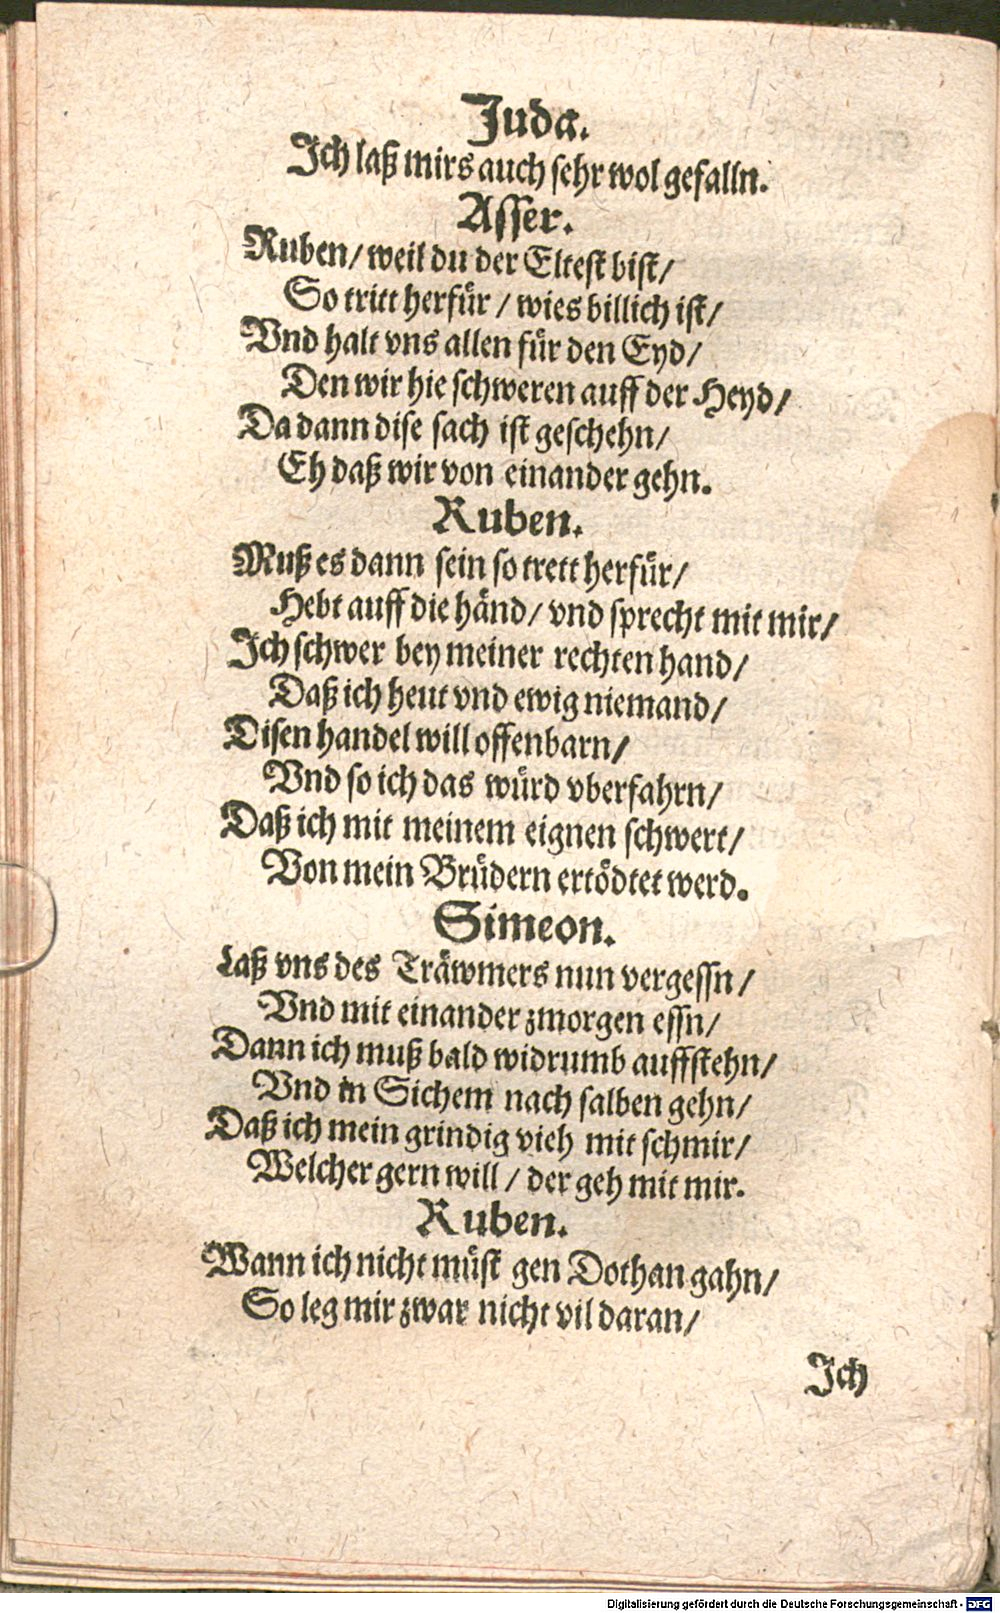 Juda.
Ich laß mirs auch sehr wol gefalln.
Asser.
Ruben/ weil du der Eltest bist/
So tritt herfür / wies billich ist/
Vnd halt vns allen für den Eyd/
Den wir hie schweren auff der Heyd/
Da dann dise sach ist geschehn/
Eh daß wir von einander gehn.
Ruben.
Muß es dann sein so trett herfür/
Hebt auff die händ/ vnd sprecht mit mir/
Ich schwer bey meiner rechten hand/
Daß ich heut vnd ewig niemand/
Disen handel will offenbarn/
Vnd so ich das würd vberfahrn/
Daß ich mit meinem eignen schwert/
Von mein Brüdern ertödtet werd.
Simeon.
Laß vns des Träwmers nun vergessn/
Vnd mit einander zmorgen essn/
Dann ich muß bald widrumb auffstehn/
Vnd in Sichem nach salben gehn/
Daß ich mein grindig vieh mit schmir/
Welcher gern will / der geh mit mir.
Ruben.
Wann ich nicht müst gen Dothan gahn/
So leg mir zwar nicht vil daran/
Ich
Digitalisierung gefördert durch die Deutsche Forschungsgemeinschaft - DFG